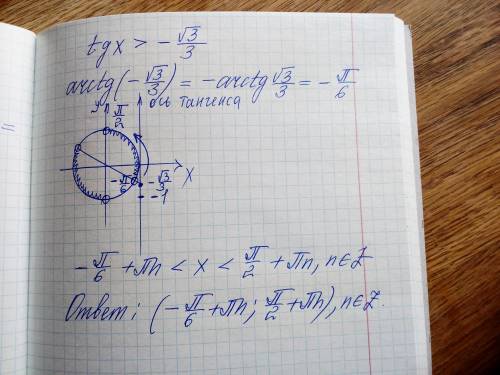 tgx > -√3/3
arctg(-√3/3) = -arctg √3/3 = -π/6
y π/2 ось тангенса
x
-π/6 -√3/3
-1
-π/6 + πn < x < π/2 + πn, n∈Z
Ответ: (-π/6 + πn; π/2 + πn), n∈Z.
=